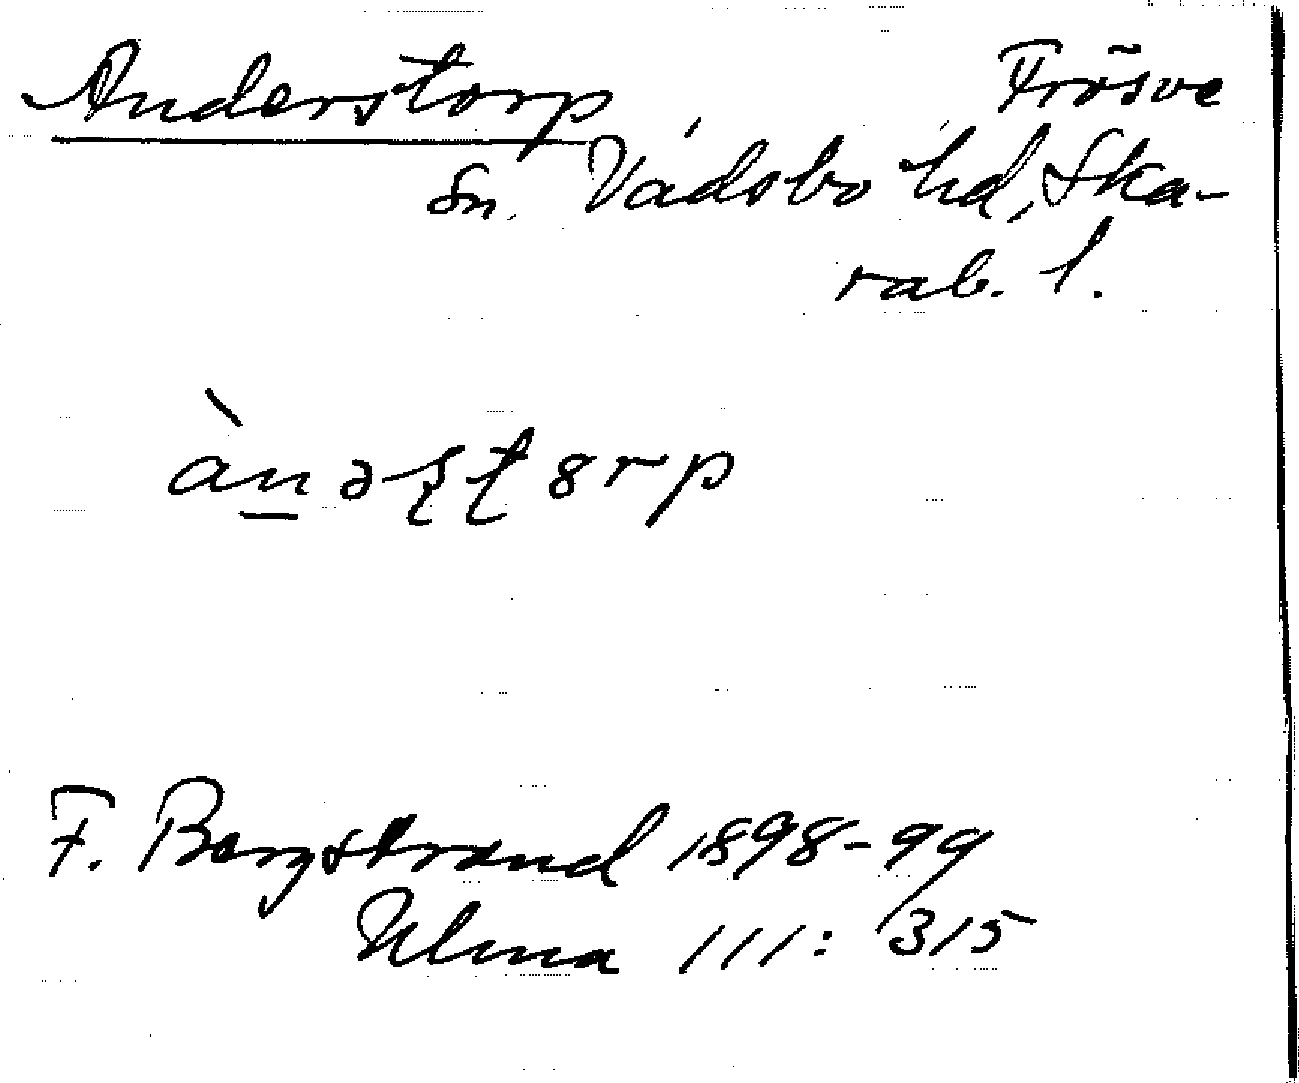 Anderstorp, Frösve
sn. Vadsbo hd, Ska-
rab. l.
àn̲əʂʈ8rp
F. Bergstrand 1898-99
Ulma 111: 315